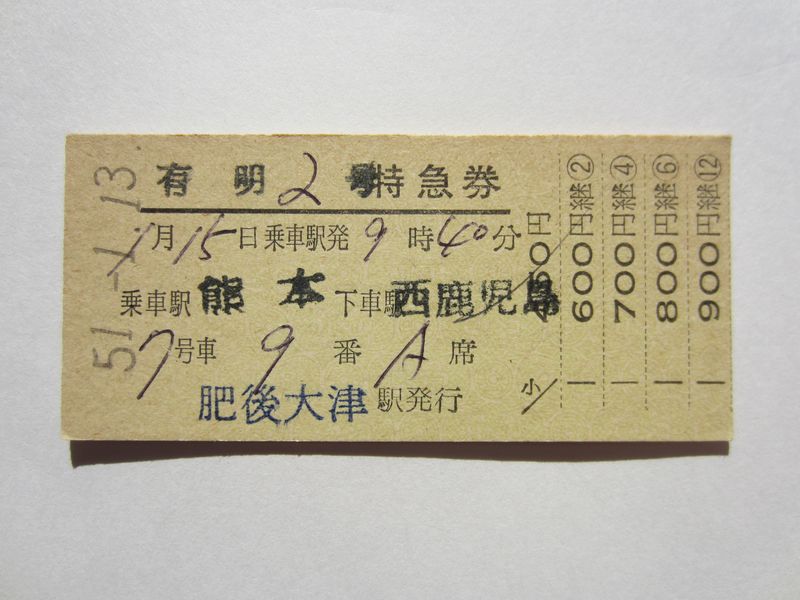 51.-1.13
有明2号特急券
1月15日乗車駅発9時40分
乗車駅 熊本 下車駅 西鹿児島
7号車 9番 A席
肥後大津駅発行
小
600円継②
700円継④
800円継⑥
900円継⑫